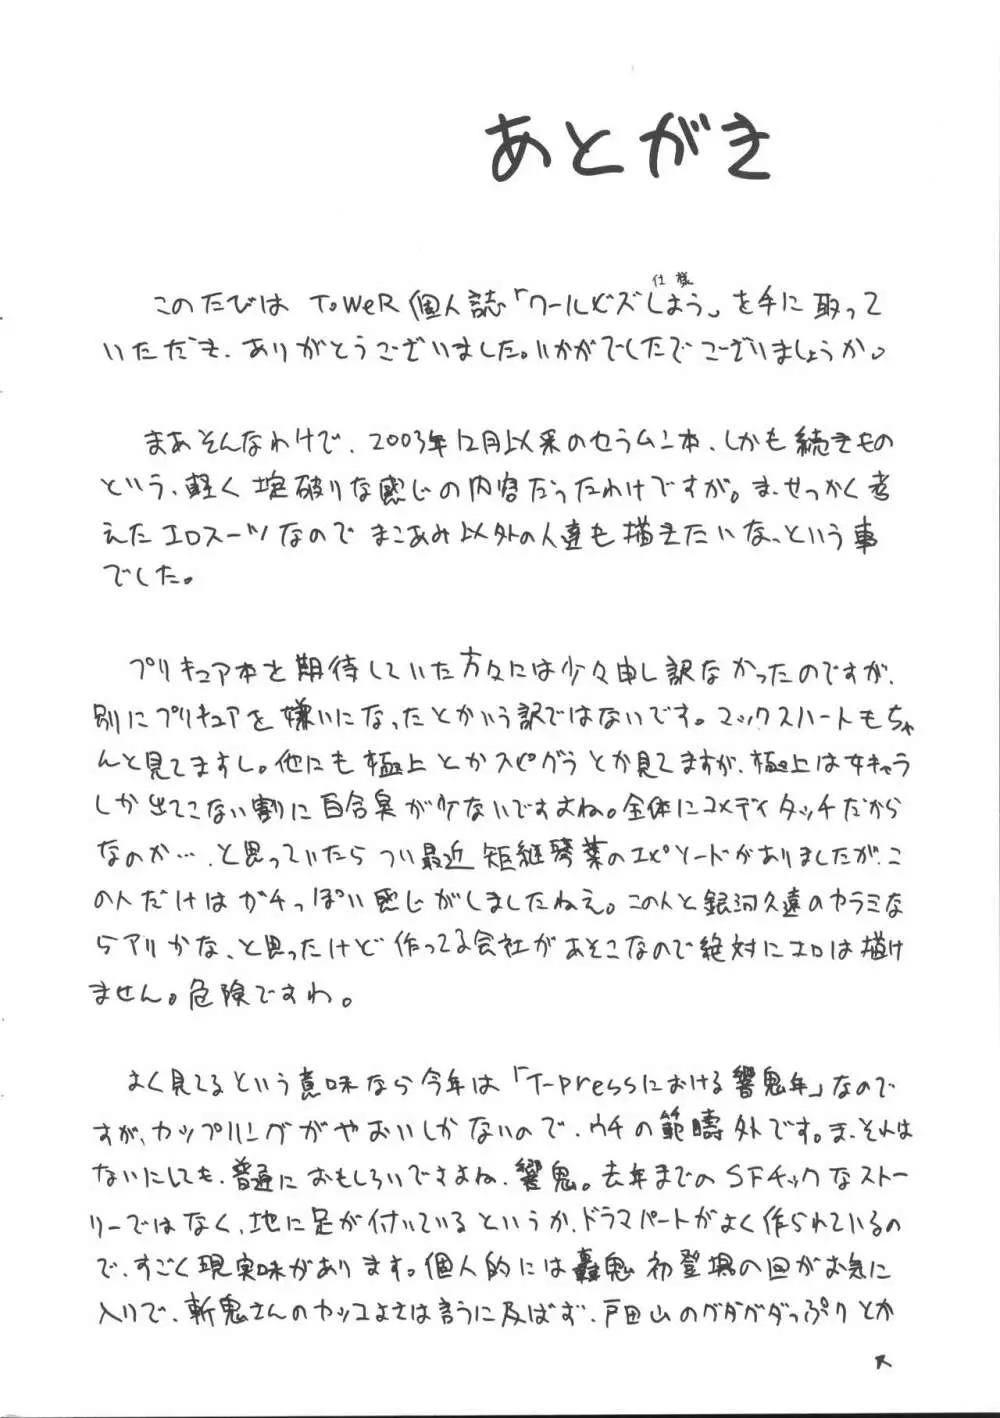 あとがき
仕様
このたびは ToWeR個人誌「ワールビズしよう」を手に取って
いただき、ありがとうございました。いかがでしたでございましょうか。
まあそんなわけで、2003年12月以来のセラムン本、しかも続きもの
という、軽く掟破りな感じの内容だったわけですが。ま、せっかく考
えたエロスーツなので まこあみ以外の人達も描きたいなっという事
でした。
プリキュア本を期待していた方々には少々申し訳なかったのですが、
別にプリキュアを嫌いになったとかいう訳ではないです。マックスハートもちゃ
んと見てますし。他にも極上とかスピグラとか見てますが、極上は女キャラ
しか出てこない割に百合臭がケないですよね。全体にコメディタッチだから
なのか…、と思っていたらつい最近 矩継琴葉のエピソードがありましたが、こ
の人だけはガチっぽい感じがしましたねえ。この人と銀河久遠のカラミな
らアリかな、と思ったけど作ってる会社があそこなので絶対にエロは描け
ません。危険ですわ。
よく見てるという意味なら今年は「T-pressにおける響鬼年」なので
すが、カップリングがやおいしかないので、ウチの範疇外です。ま、それは
ないにしても、普通におもしろいですよね、響鬼。去年までのSFチックなストー
リーではなく、地に足が付いているというか、ドラマパートがよく作られているの
で、すごく現実味があります。個人的には轟鬼初登場の回がお気に
入りで、斬鬼さんのカッコよさは言うに及ばず、戸田山のグダグダっぷりとか